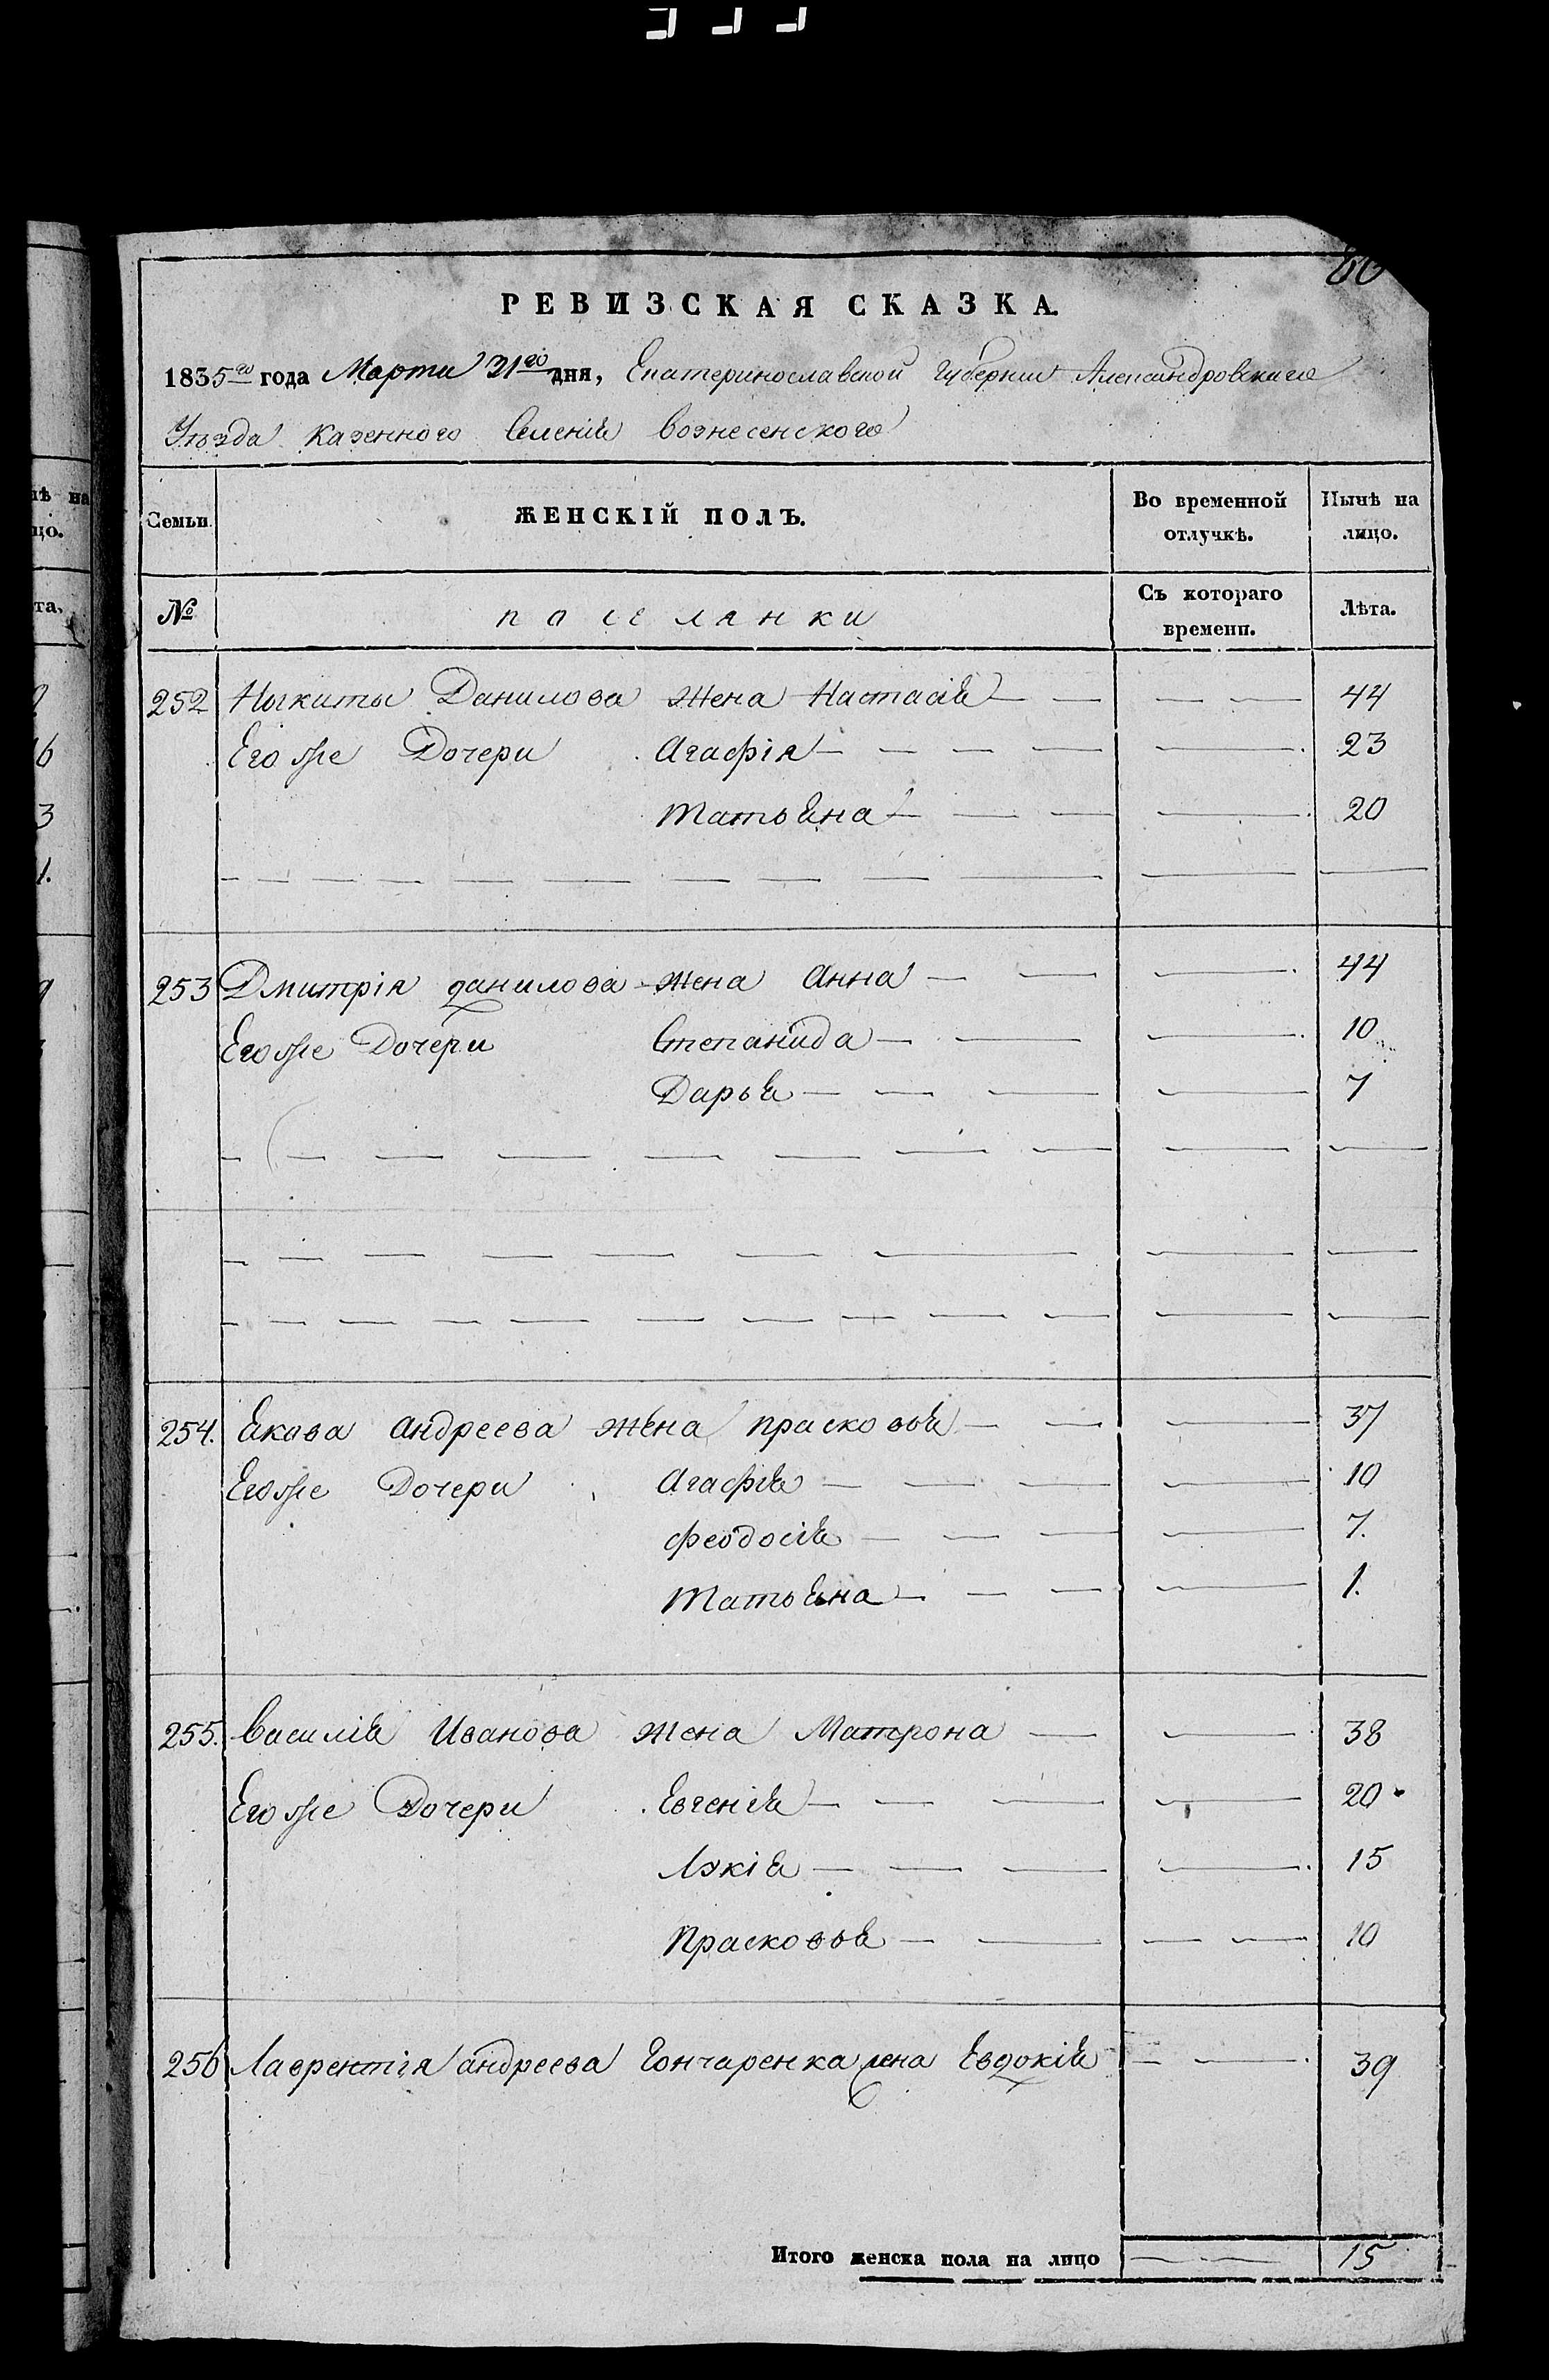 РЕВИЗСКАЯ СКАЗКА.
1835го года Марта 31го дня, Екатеринославской губернии Александровскаго
Уѣзда Казенного Селенія Вознесенского
Семьи. ЖЕНСКІЙ ПОЛЪ. Во временной отлучкѣ. Нынѣ на лицо.
№ поселянки Съ котораго времени. Лѣта.
252 Никиты Данилова жена Настасія — — 44
Его же Дочери Агафія — 23
Татьяна — 20
253 Дмитрія данилова жена Анна — 44
Его же Дочери Степанида — 10
Дарья — 7
254. Якова Андреева жена Прасковья — 37
Его же Дочери Агафія — 10
Феодосія — 7.
Татьяна — 1.
255. Василія Иванова жена Матрона — 38
Его же Дочери Евгенія — 20
Лукія — 15
Прасковья — 10
256 Лаврентія андреева Гончаренка жена Евдокія — 39
Итого женска пола на лицо — 15